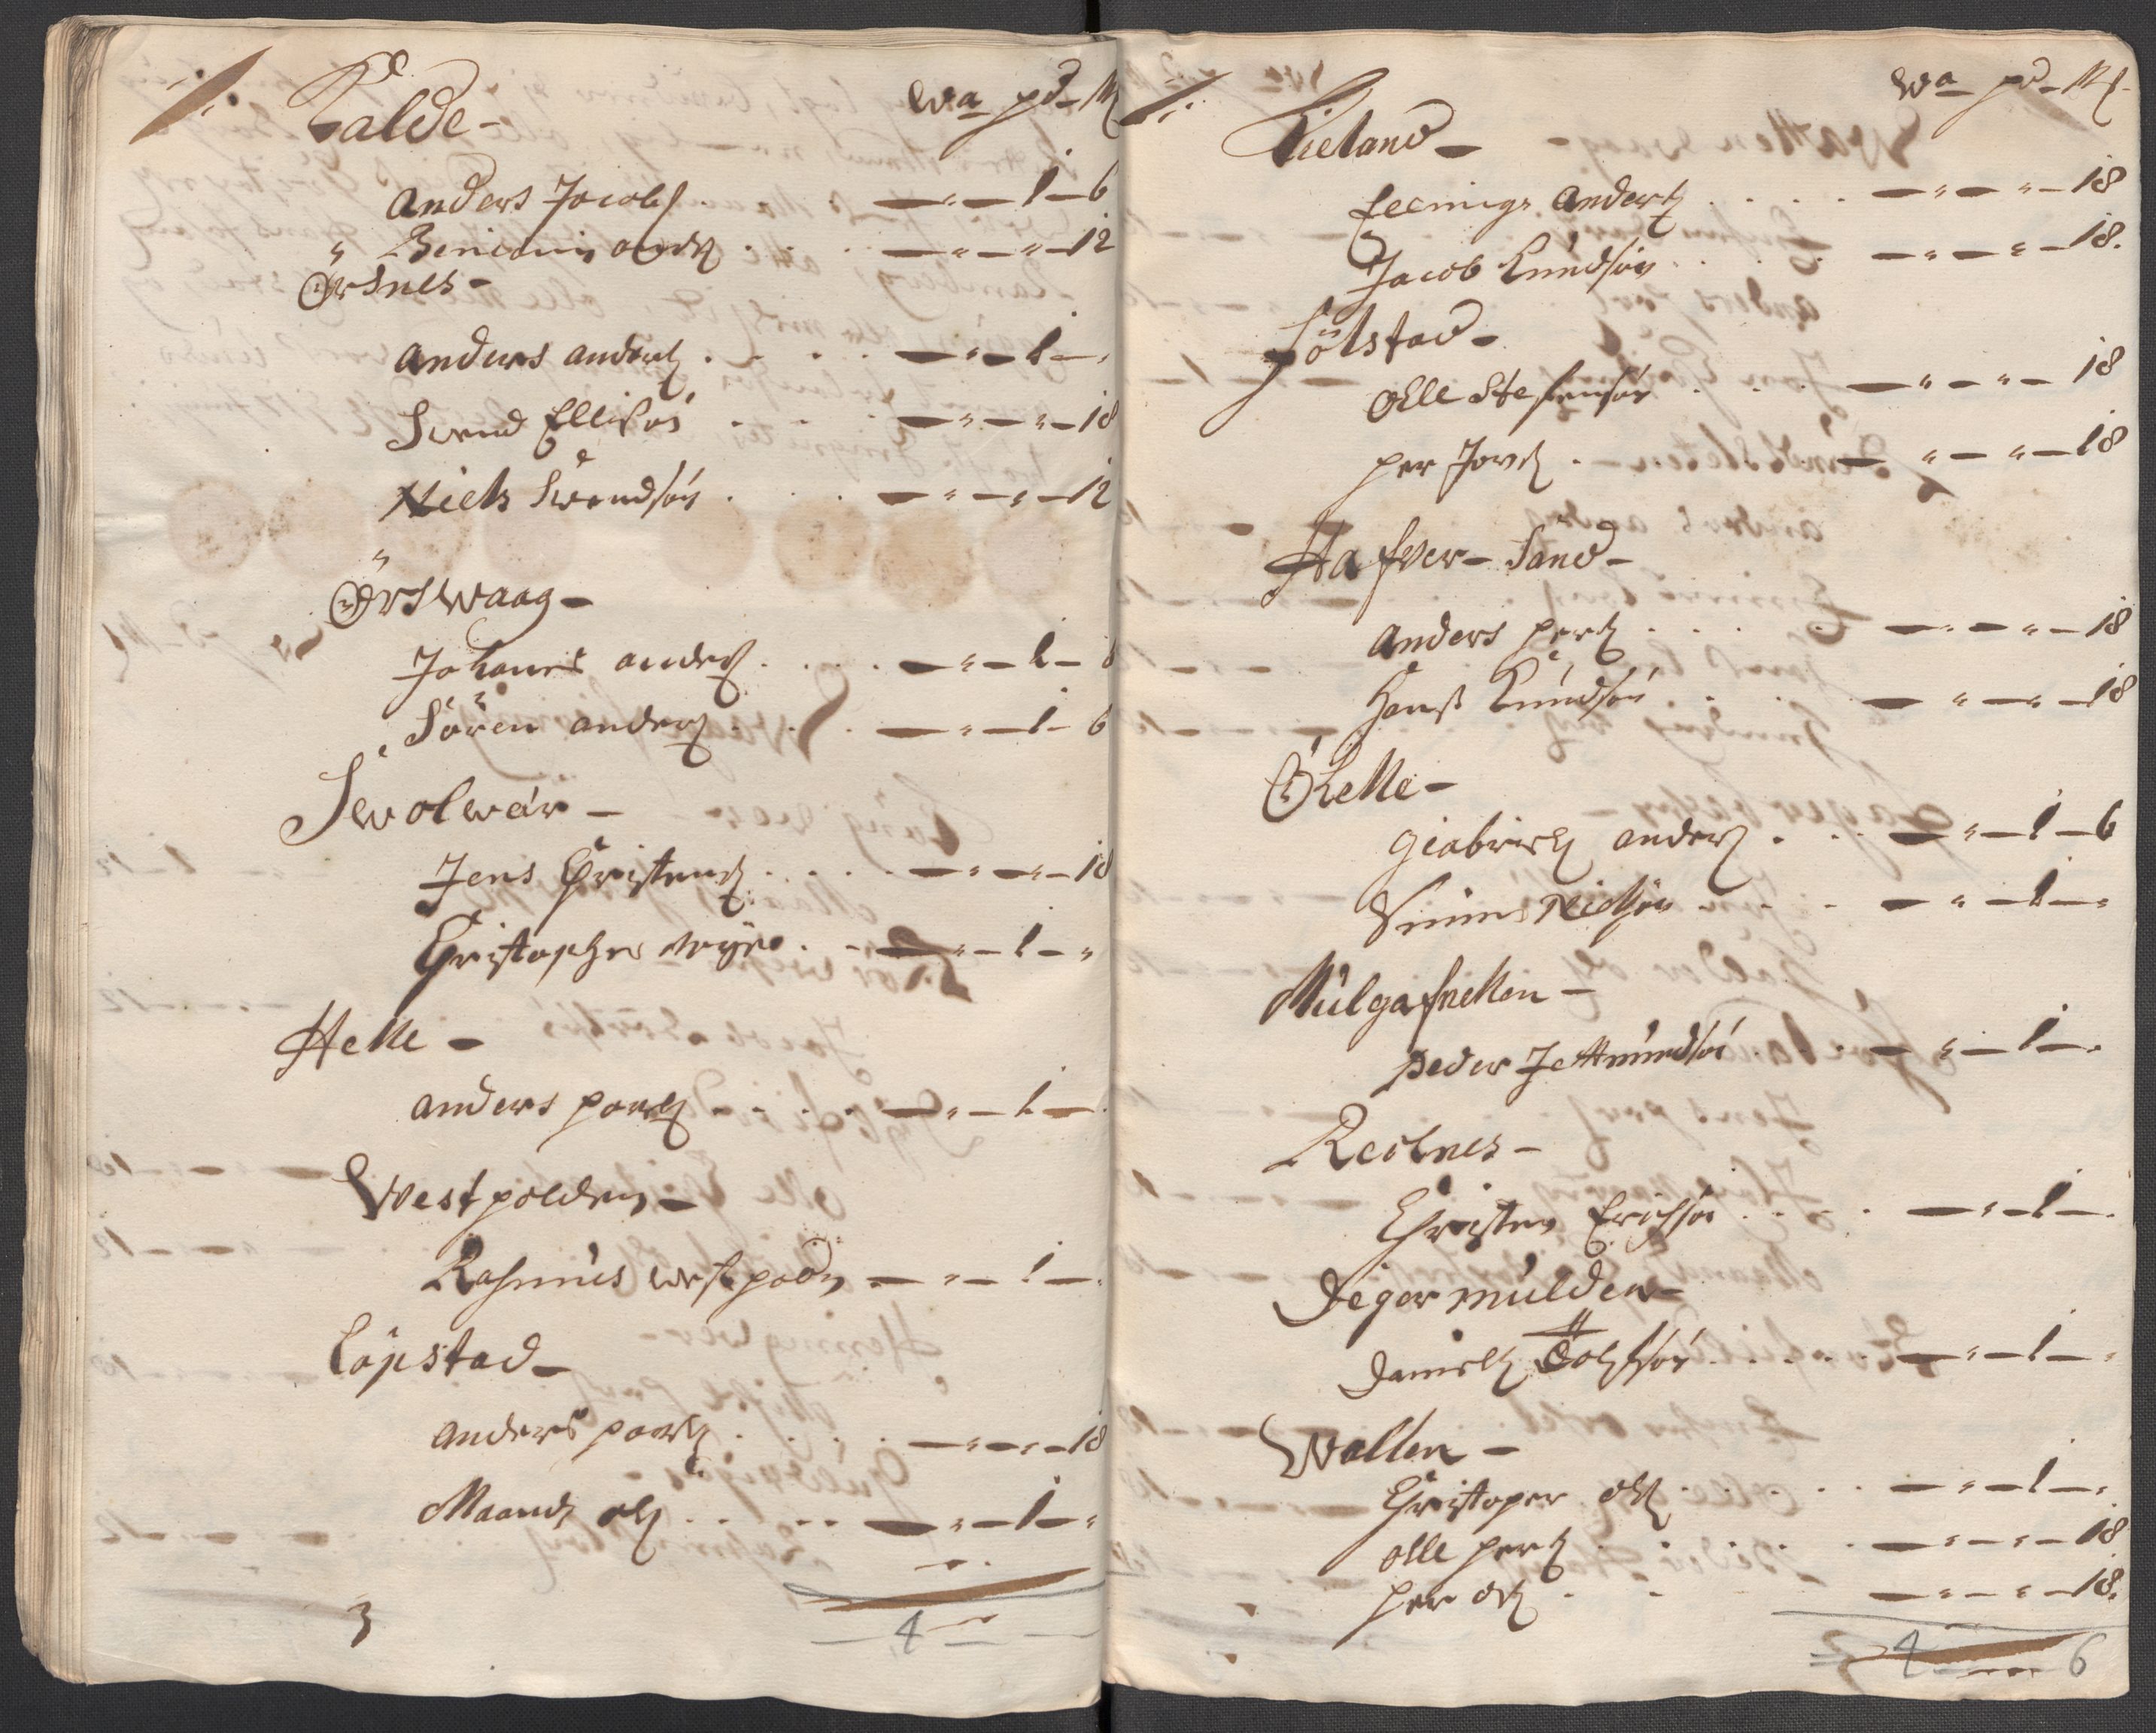 Kalde - Wa pd - M
Anders Jacobs . . — " — 1 — 6
" Beniamin ands . . . — " — " — 12
Örsnes -
Anders anders . . . . — " — 1 — "
Svend Ellisøn . . . — " — " — 18
Niels Svendsøn . . . — " — " — 12
Örswaag -
Johanes anders . . . . — " — 1 — 6
Sören anders . . . — " — 1 — 6
Swolwær -
Jens Christens . . . . — " — " — 18
Christopher . . — " — 1 — "
Helle -
anders povels . . . . — " — 1 — .
Westpolden -
Rasmus westpoldn — " — 1 — .
Löpstad -
anders povels . . . . — " — " — 18
Maands ols . . . . . — " — 1 — "
4
3
Wa - pd - M
Kieland -
Anders . . . . — " — " — 18
Jacob Knudsøn . . . . — " — " — 18.
Sölstad -
Olle Stefensøn . . . — " — " — 18
per Jons . — " — " — 18
Hafver - Sand -
Anders pers . . . . — " — " — 18
Hans Knudsøn . . . — " — " — 18
Ö Helle -
Giabriels anders . . . — " — 1 — 6
Nielsøn . . . — " — 1 — "
Mulgafnellen -
Peder Jettmundsøn . . — " — 1 — .
Reisnes -
Christen Erichsøn . . . . — " — 1 — .
Digermulden -
Daniels . . . . . — " — 1 — "
Wollen -
Christoper ols . . . . . — " — 1 — "
olle pers . . . . . — " — " — 18
per ols . . — " — " — 18.
4 6